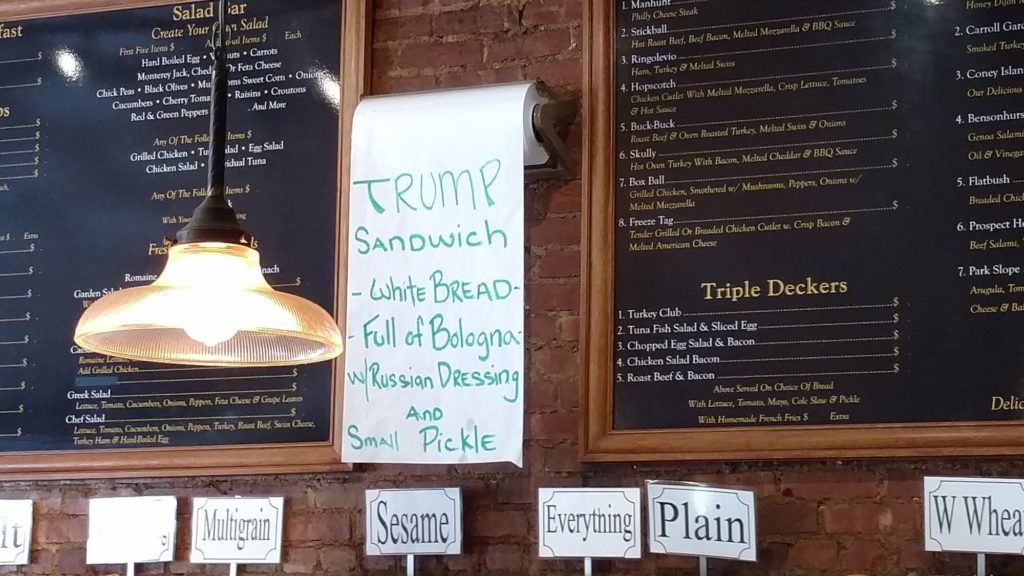 fast
Salad Bar
Create Your Own Salad
First Five Items $ Items $ Each
Hard Boiled Egg • • Carrots
Monterey Jack, Or Feta Cheese
Chick Peas • Black Olives • Sweet Corn • Onions
Cucumbers • Cherry • Raisins • Croutons
Red & Green Peppers And More
Any Of The Items $
Grilled Chicken • • Egg Salad
Chicken Salad • Tuna
Any Of The Items $
Romaine
Garden
Romaine
Add Grilled Chicken
Greek Salad $
Lettuce, Tomato, Cucumbers, Onions, Peppers, Feta Cheese & Grape Leaves
Chef Salad $
Lettuce, Tomato, Cucumbers, Onions, Peppers, Turkey, Roast Beef, Swiss Cheese,
Turkey Ham & Hard-Boiled Egg
TRUMP
SANDWICH
- White BREAD -
- Full of Bologna -
w/ RUSSIAN DRESSING
AND
SMALL PICKLE
1. Manhunt
Philly Cheese Steak
2. Stickball $
Hot Roast Beef, Beef Bacon, Melted Mozzarella & BBQ Sauce
3. Ringolevio $
Ham, Turkey & Melted Swiss
4. Hopscotch $
Chicken Cutlet With Melted Mozzarella, Crisp Lettuce, Tomatoes
& Hot Sauce
5. Buck-Buck $
Roast Beef & Oven Roasted Turkey, Melted Swiss & Onions
6. Skully $
Hot Oven Turkey With Bacon, Melted Cheddar & BBQ Sauce
7. Box Ball $
Grilled Chicken, Smothered w/ Mushrooms, Peppers, Onions w/
Melted Mozzarella
8. Freeze Tag $
Tender Grilled Or Breaded Chicken Cutlet w. Crisp Bacon &
Melted American Cheese
Triple Deckers
1. Turkey Club $
2. Tuna Fish Salad & Sliced Egg $
3. Chopped Egg Salad & Bacon $
4. Chicken Salad Bacon $
5. Roast Beef & Bacon $
Above Served On Choice Of Bread
With Lettuce, Tomato, Mayo, Cole Slaw & Pickle
With Homemade French Fries $ Extra
Honey Dijon
2. Carroll Gar
Smoked Turkey
3. Coney Island
Our Delicious
4. Bensonhurs
Genoa Salama
Oil & Vinegar
5. Flatbush
Breaded Chic
6. Prospect He
Beef Salami,
7. Park Slope
Arugula, Tom
Cheese & Ba
Delic
Multigrain
Sesame
Everything
Plain
W Whea